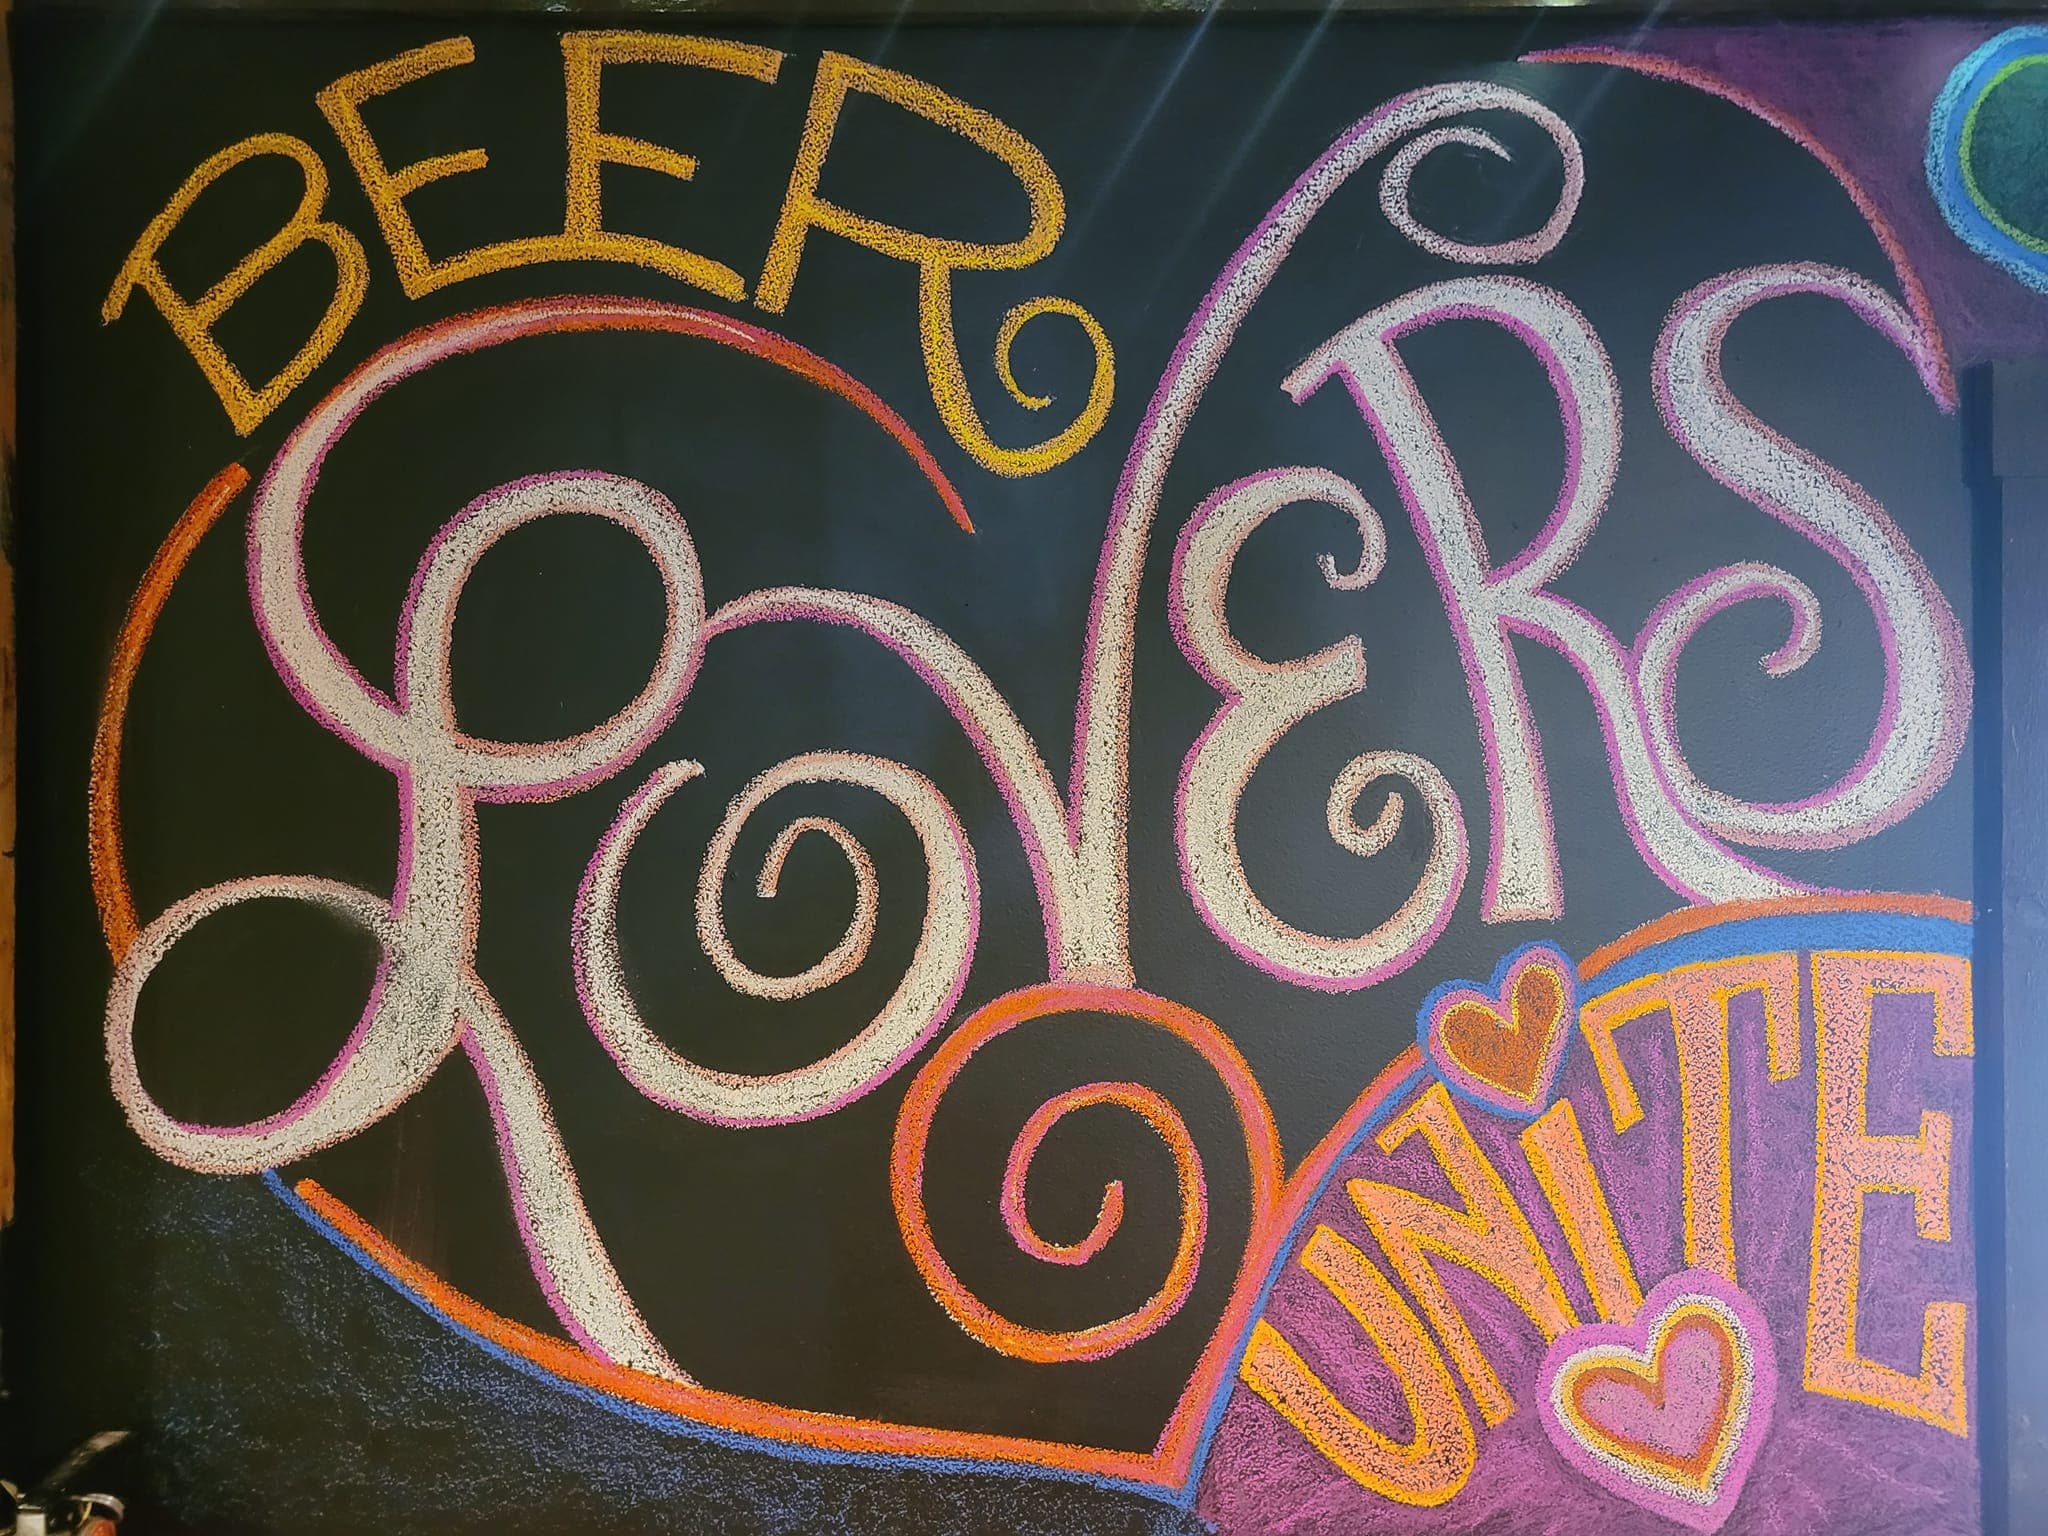 BEER
LOVERS
UNITE